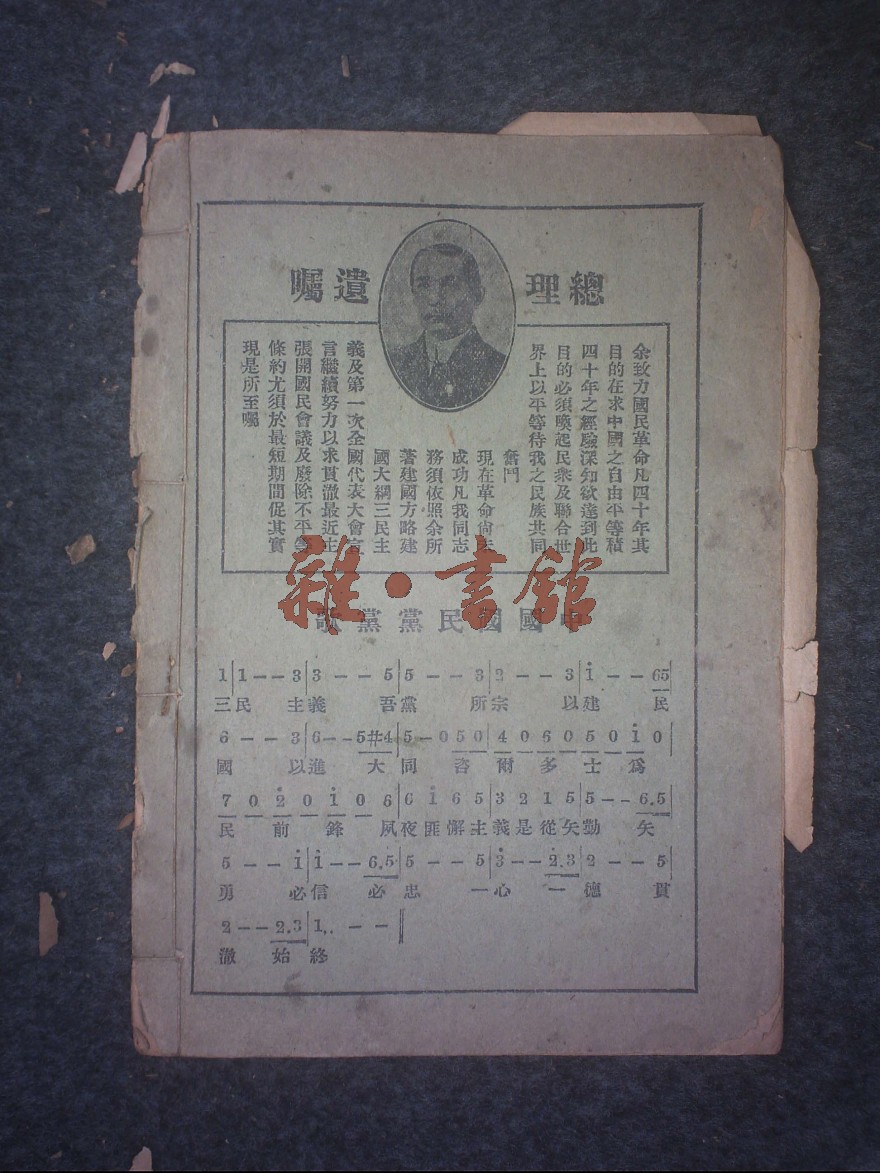 總理遺囑
余致力國民革命凡四十年其
目的在求中國之自由平等積
四十年之經驗深知欲達到此
目的必須喚起民衆及聯合世
界上以平等待我之民族共同
奮鬥
現在革命尙未
成功凡我同志
務須依照余所
著建國方略建
國大綱三民主
義及第一次全國代表大會宣
言繼續努力以求貫澈最近主
張開國民會議及廢除不平等
條約尤須於最短期間促其實
現是所至囑
雜·書館
中國國民黨黨歌
1|1--3|3--5|5--3|2--3|i--65|
三民主義吾黨所宗以建民
6--3|6--5#4|5-050|4060|50i0|
國以進大同咨爾多士爲
7020i06|6i65|3215|5--6.5|
民前鋒夙夜匪懈主義是從矢勤矢
5--i|i--6.5|5--5|3--2.3|2--5|
勇必信必忠一心一德貫
2--2.3|1..--||
澈始終